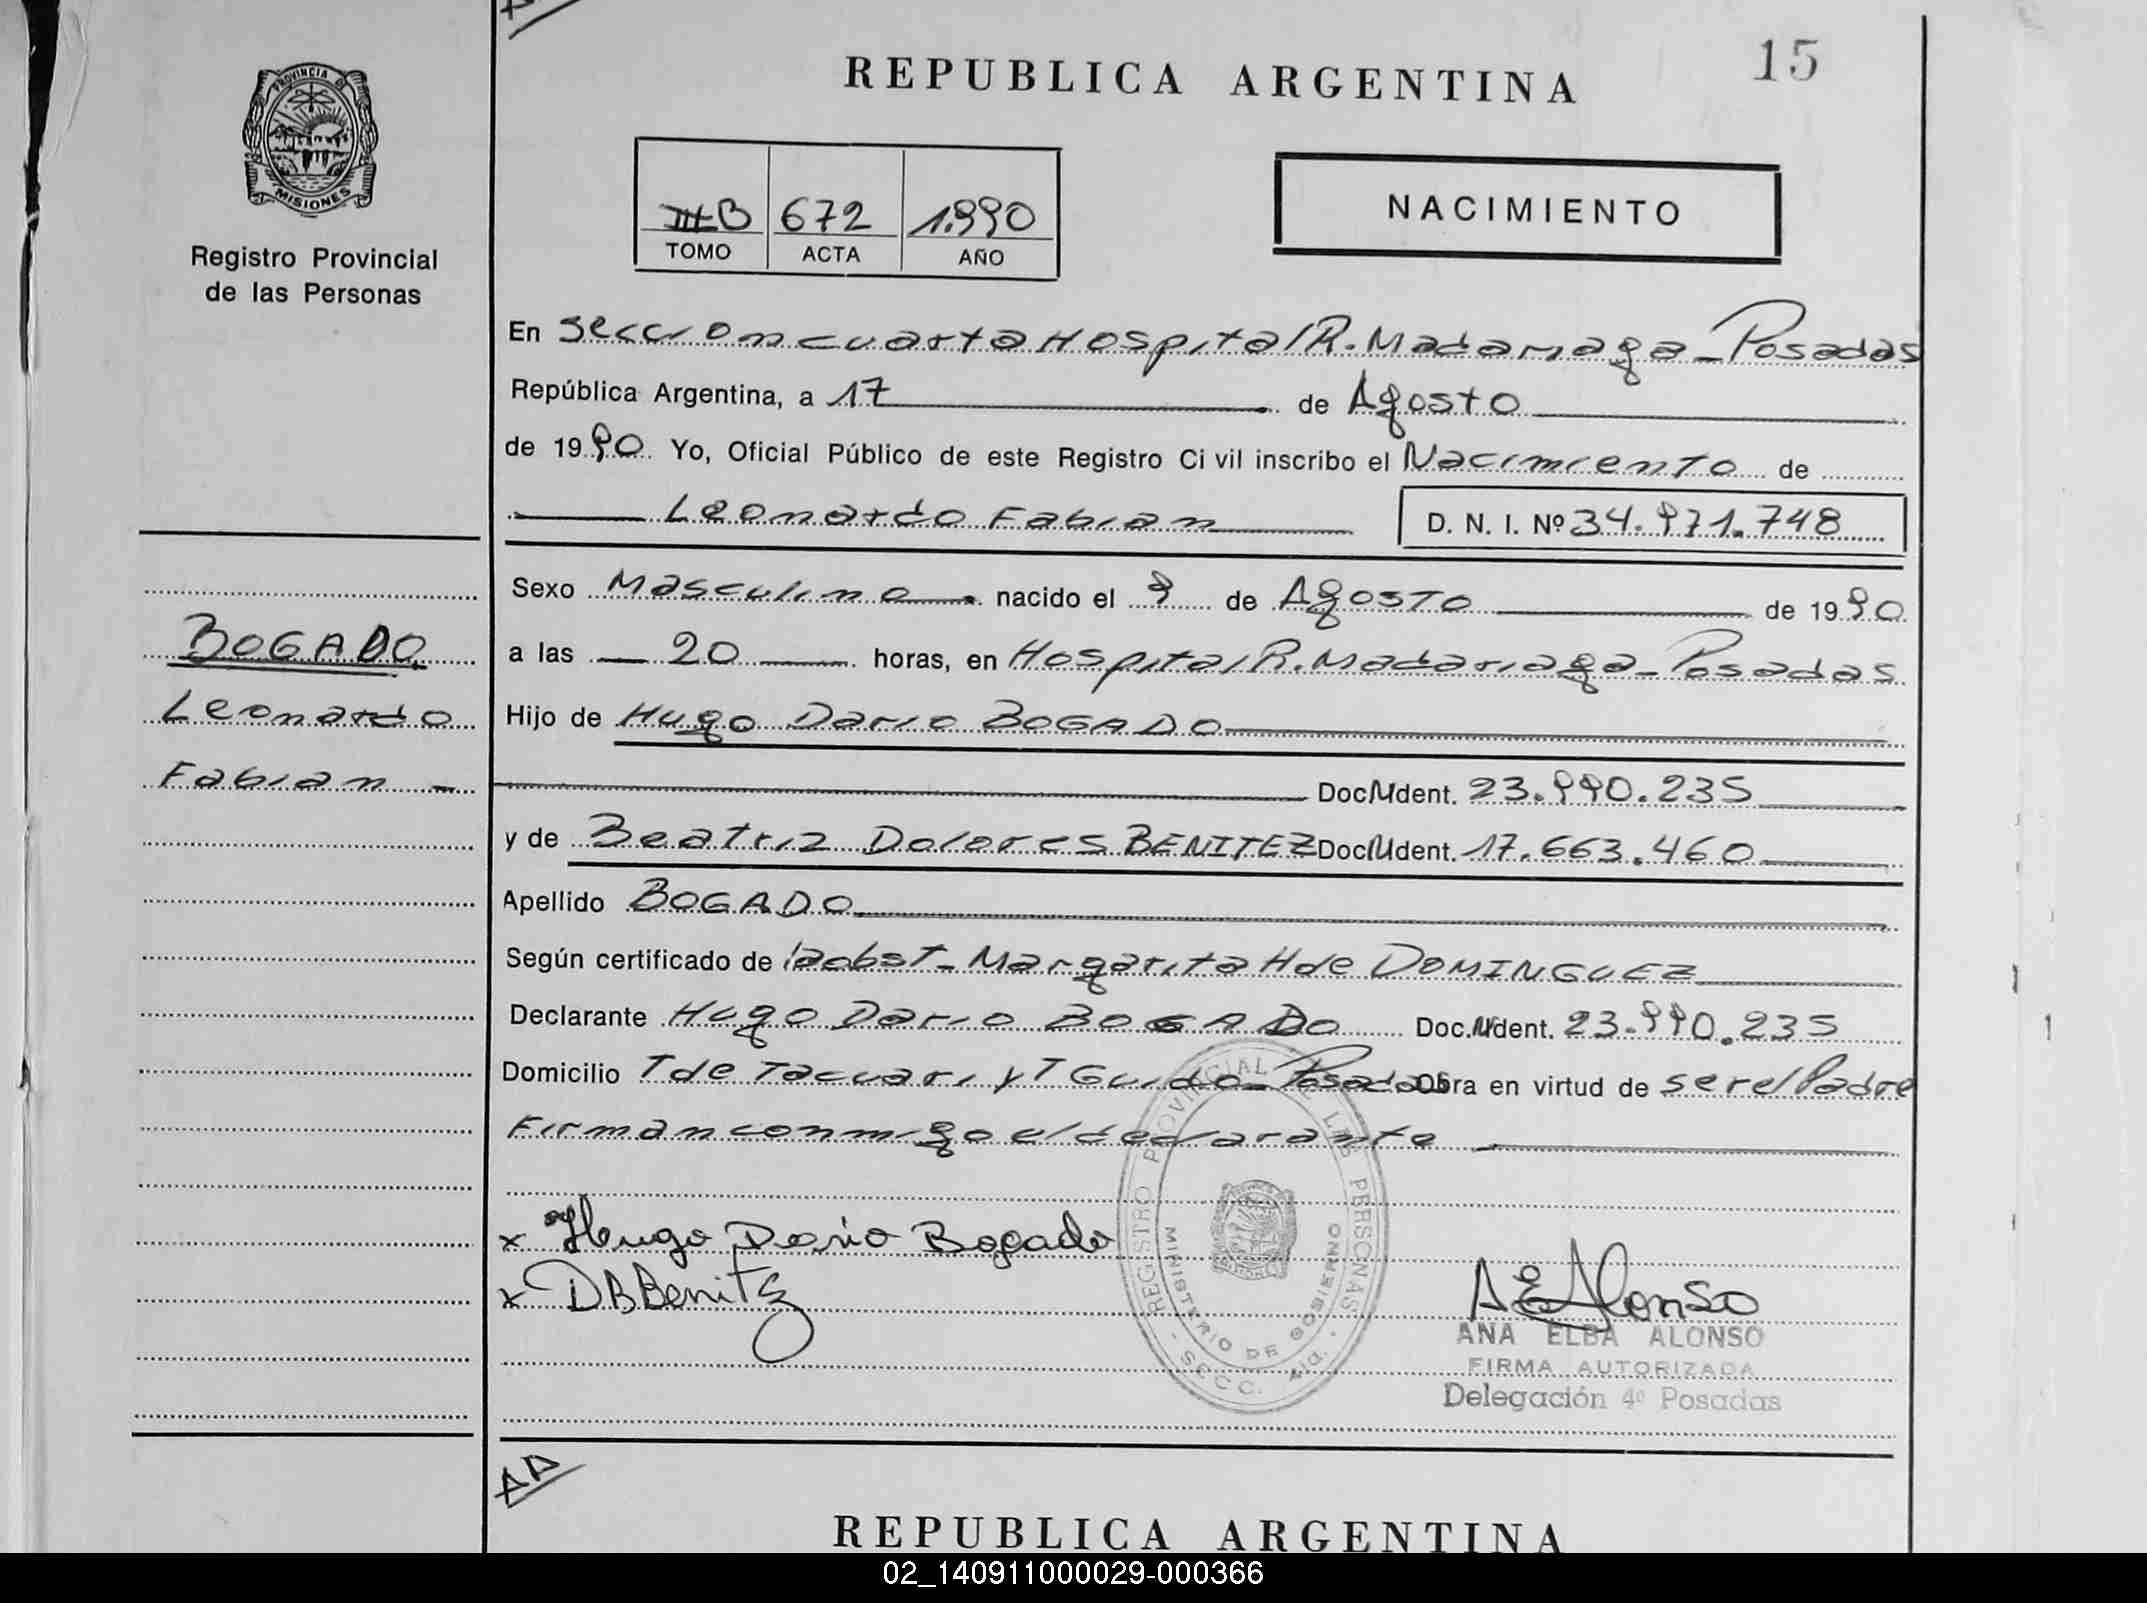 15
REPUBLICA ARGENTINA
PROVINCIA DE
MISIONES
Registro Provincial
de las Personas
III B 672 1.990
TOMO ACTA AÑO
NACIMIENTO
En Seccion cuarta Hospital R. Madariaga - Posadas
República Argentina, a 17 de Agosto
de 1990 Yo, Oficial Público de este Registro Civil inscribo el Nacimiento de
Leonardo Fabian D. N. I. Nº 34.971.748
Sexo Masculino nacido el 9 de Agosto de 1990
BOGADO
Leonardo
Fabian -
a las 20 horas, en Hospital R. Madariaga - Posadas
Hijo de Hugo Dario BOGADO
Doc. Ident. 23.990.235
y de Beatriz Dolores BENITEZ Doc. Ident. 17.663.460
Apellido BOGADO
Según certificado de la obst - Margarita H de DOMINGUEZ
Declarante Hugo Dario BOGADO Doc. Ident. 23.990.235
Domicilio T de Tacuari y T Guido - Posadas Obra en virtud de ser el Padre
Firman conmigo el declarante
x Hugo Dario Bogado
x D B Benitez
REGISTRO PROVINCIAL DE LAS PERSONAS
MINISTERIO DE GOBIERNO
- SECC. 4ta. -
A E Alonso
ANA ELBA ALONSO
FIRMA AUTORIZADA
Delegación 4º Posadas
REPUBLICA ARGENTINA
02_140911000029-000366